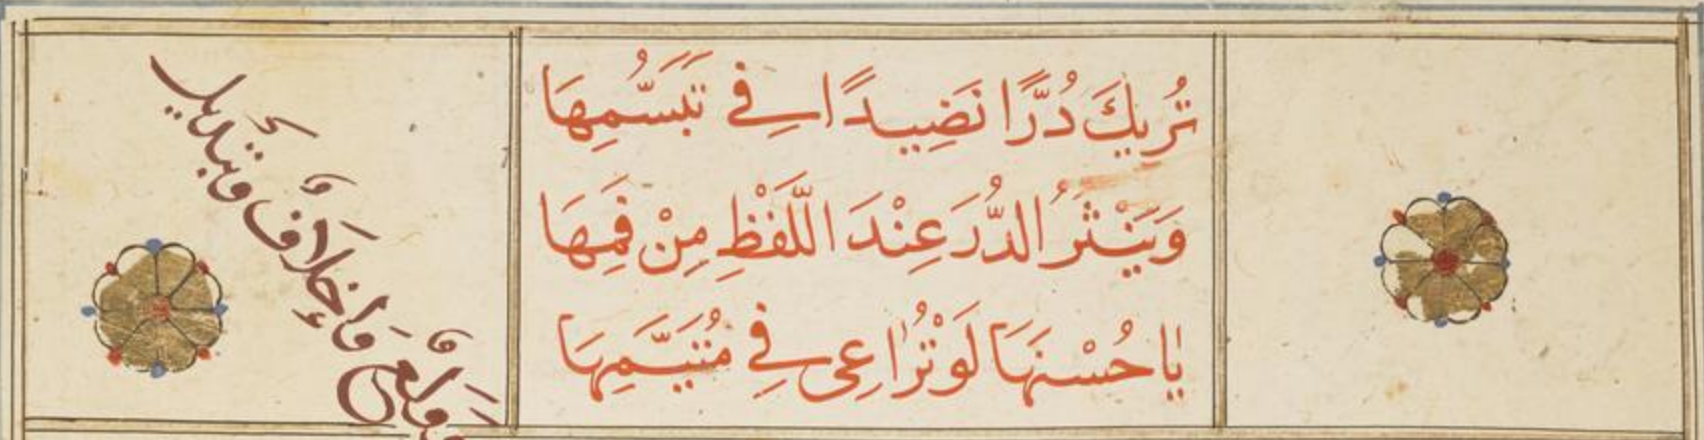 تُرِيكَ دُرًّا نَضِيدًا فِي تَبَسُّمِهَا
وَيَنْثُرُ الدُّرَ عِنْدَ اللَّفْظِ مِنْ فَمِهَا
يٰا حُسْنَهَا لَوْ تُرٰاعِى فِي مُتَيَّمِهَا
وَوَلْعٌ وَإِخْلَافٌ وَتَبْدِيلُ